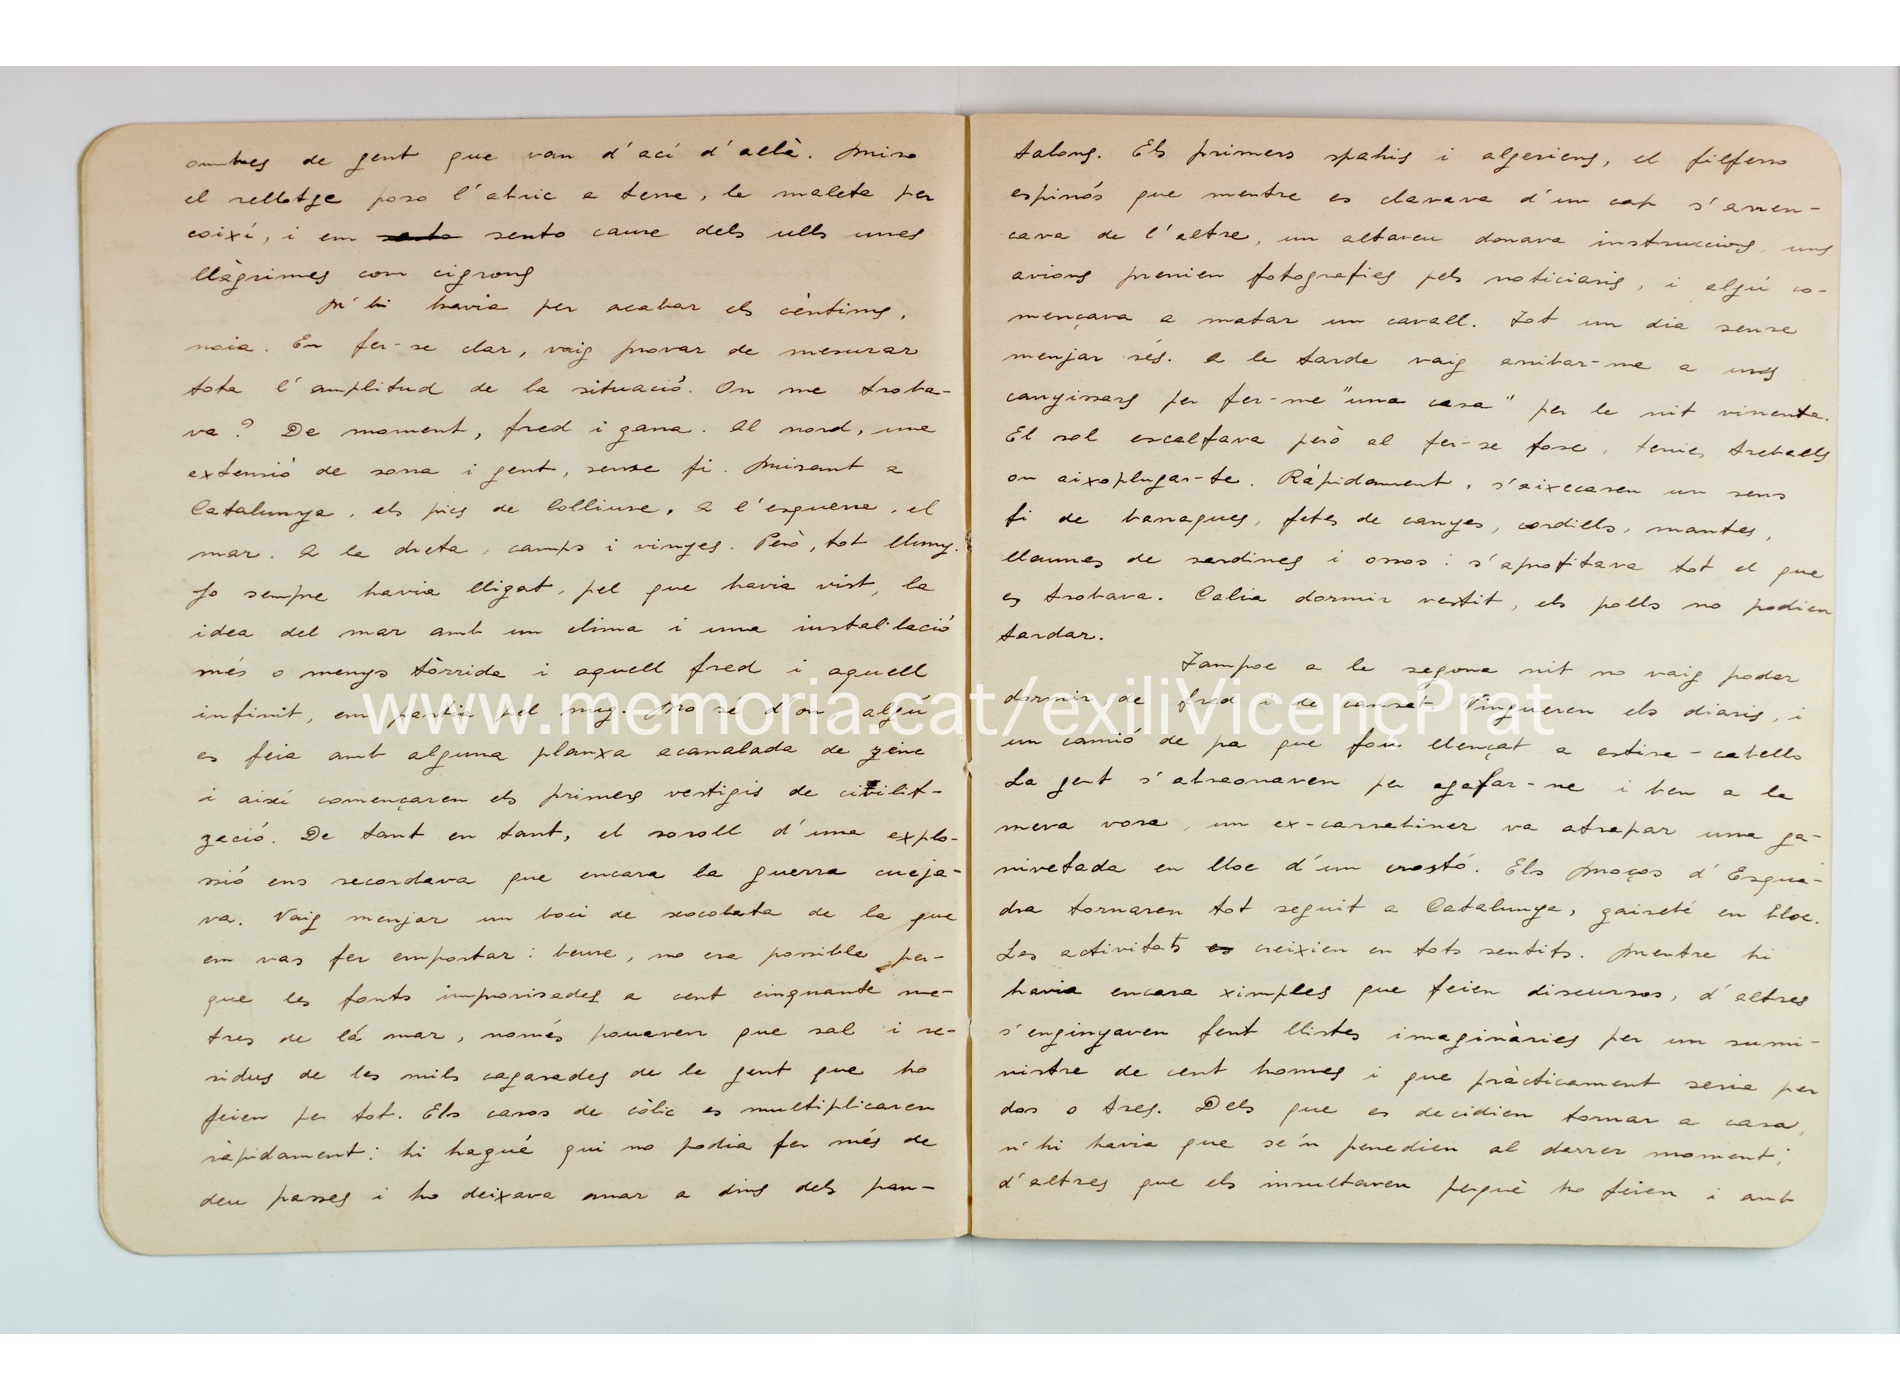 ombres de gent que van d'ací d'allà. Miro
el rellotge poso l'abric a terra, la maleta per
coixí, i em sento caure dels ulls unes
llàgrimes com cigrons
N'hi havia per acabar els cèntims,
noia. En fer-se clar, vaig provar de mesurar
tota l'amplitud de la situació. On me troba-
va? De moment, fred i gana. Al nord, una
extensió de sorra i gent, sense fi. Mirant a
Catalunya, els pics de Colliure, a l'esquerra, el
mar. A la dreta, camps i vinyes. Però, tot lluny.
Jo sempre havia lligat, pel que havia vist, la
idea del mar amb un clima i una instal·lació
més o menys tòrrida i aquell fred i aquell
infinit, em partia pel mig. No sé d'on, algú
es feia amb alguna planxa acanalada de zinc
i així començaren els primers vestigis de civilit-
zació. De tant en tant, el soroll d'una explo-
sió ens recordava que encara la guerra cueja-
va. Vaig menjar un boci de xocolata de la que
em vas fer emportar: beure, no era possible per-
que les fonts improvisades a cent cinquanta me-
tres de la mar, només pouaven que sal i re-
sidus de les mils cagarades de la gent que ho
feien per tot. Els casos de còlic es multiplicaren
ràpidament: hi hagué qui no podia fer més de
deu passes i ho deixava anar a dins dels pan-
talons. Els primers spahis i algeriens, el filferro
espinós que mentre es clavava d'un cap s'arren-
cava de l'altre, un altaveu donava instruccions, uns
avions prenien fotografies pels noticiaris, i algú co-
mençava a matar un cavall. Tot un dia sense
menjar res. A la tarde vaig arribar-me a uns
canyissars per fer-me "una casa" per la nit vinenta.
El sol escalfava però al fer-se fosc, tenies treballs
on aixoplugar-te. Ràpidament, s'aixecaren un sens
fi de barraques, fetes de canyes, cordills, mantes,
llaunes de sardines i ossos: s'aprofitava tot el que
es trobava. Calia dormir vestit, els polls no podien
tardar.
Tampoc a la segona nit no vaig poder
dormir de fred i de cansat. Vingueren els diaris, i
un camió de pa que fou llençat a estira-cabells
La gent s'abraonaven per agafar-ne i ben a la
meva vora, un ex-carrabiner va atrapar una ga-
nivetada en lloc d'un crostó. Els Moços d'Esqua-
dra tornaren tot seguit a Catalunya, gairebé en bloc.
Les activitats creixien en tots sentits. Mentre hi
havia encara ximples que feien discursos, d'altres
s'enginyaven fent llistes imaginàries per un sumi-
nistre de cent homes i que pràcticament seria per
dos o tres. Dels que es decidien tornar a casa,
n'hi havia que se'n penedien al darrer moment;
d'altres que els insultaven perquè ho feien i amb
www.memoria.cat/exiliVicençPrat